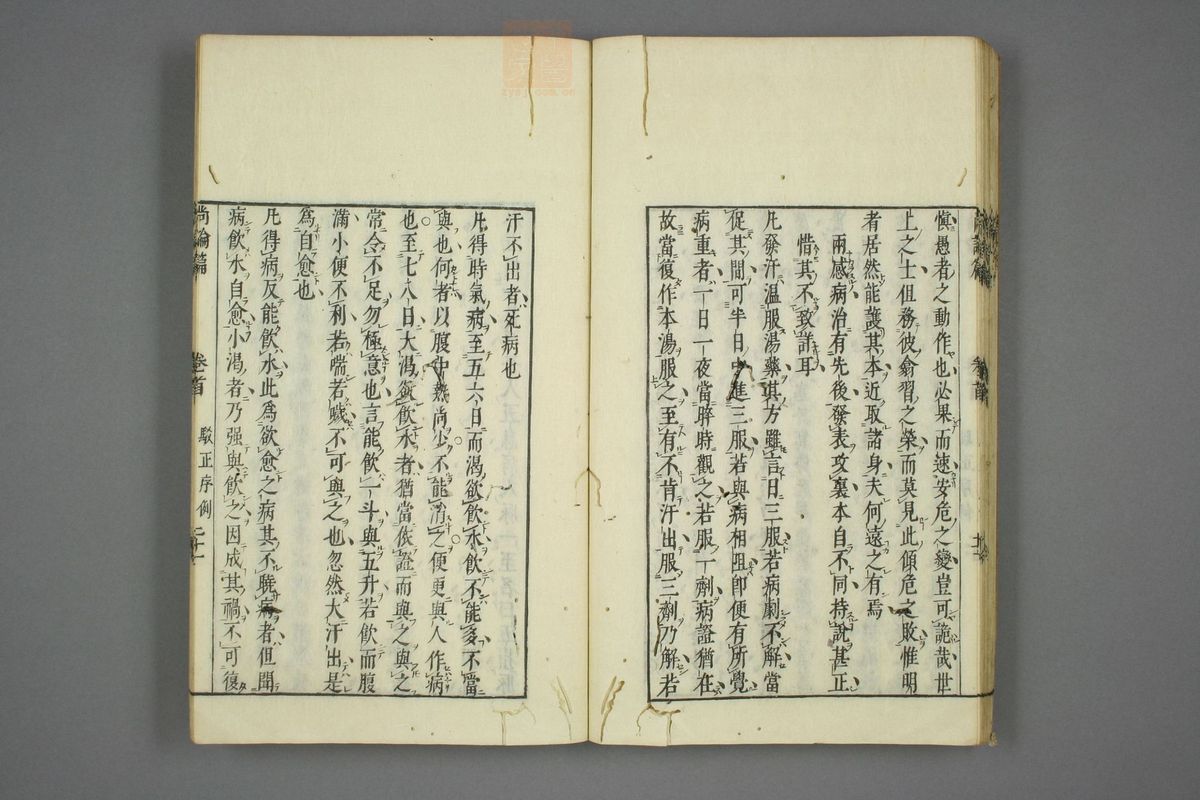 慎愚者之動作也必果而速安危之變豈可詭哉世
上之士但務彼翕習之榮而莫見此傾危之敗惟明
者居然能護其本近取諸身夫何遠之有焉
兩感病治有先後發表攻裏本自不同持說甚正
惜其不致詳耳
凡發汗温服湯藥其方雖言日三服若病劇不解當
促其間可半日中進三服若與病相阻卽便有所覺
病重者一日一夜當晬時觀之若服一劑病證猶在
故當復作本湯服之至有不肯汗出服三劑乃解若
汗不出者死病也
凡得時氣病至五六日而渴欲飲水飲不能多不當
與也何者以腹中熱尚少不能消之便更與人作病
也至七八日大渴欲飲水者猶當依證而與之與之
常令不足勿極意也言能飲一斗與五升若飲而腹
滿小便不利若喘若噦不可與之也忽然大汗出是
爲自愈也
凡得病反能飲水此爲欲愈之病其不曉病者但聞
病飲水自愈小渴者乃强與飲之因成其禍不可復
尚論篇
卷首
駁正序例
zysj.com.cn